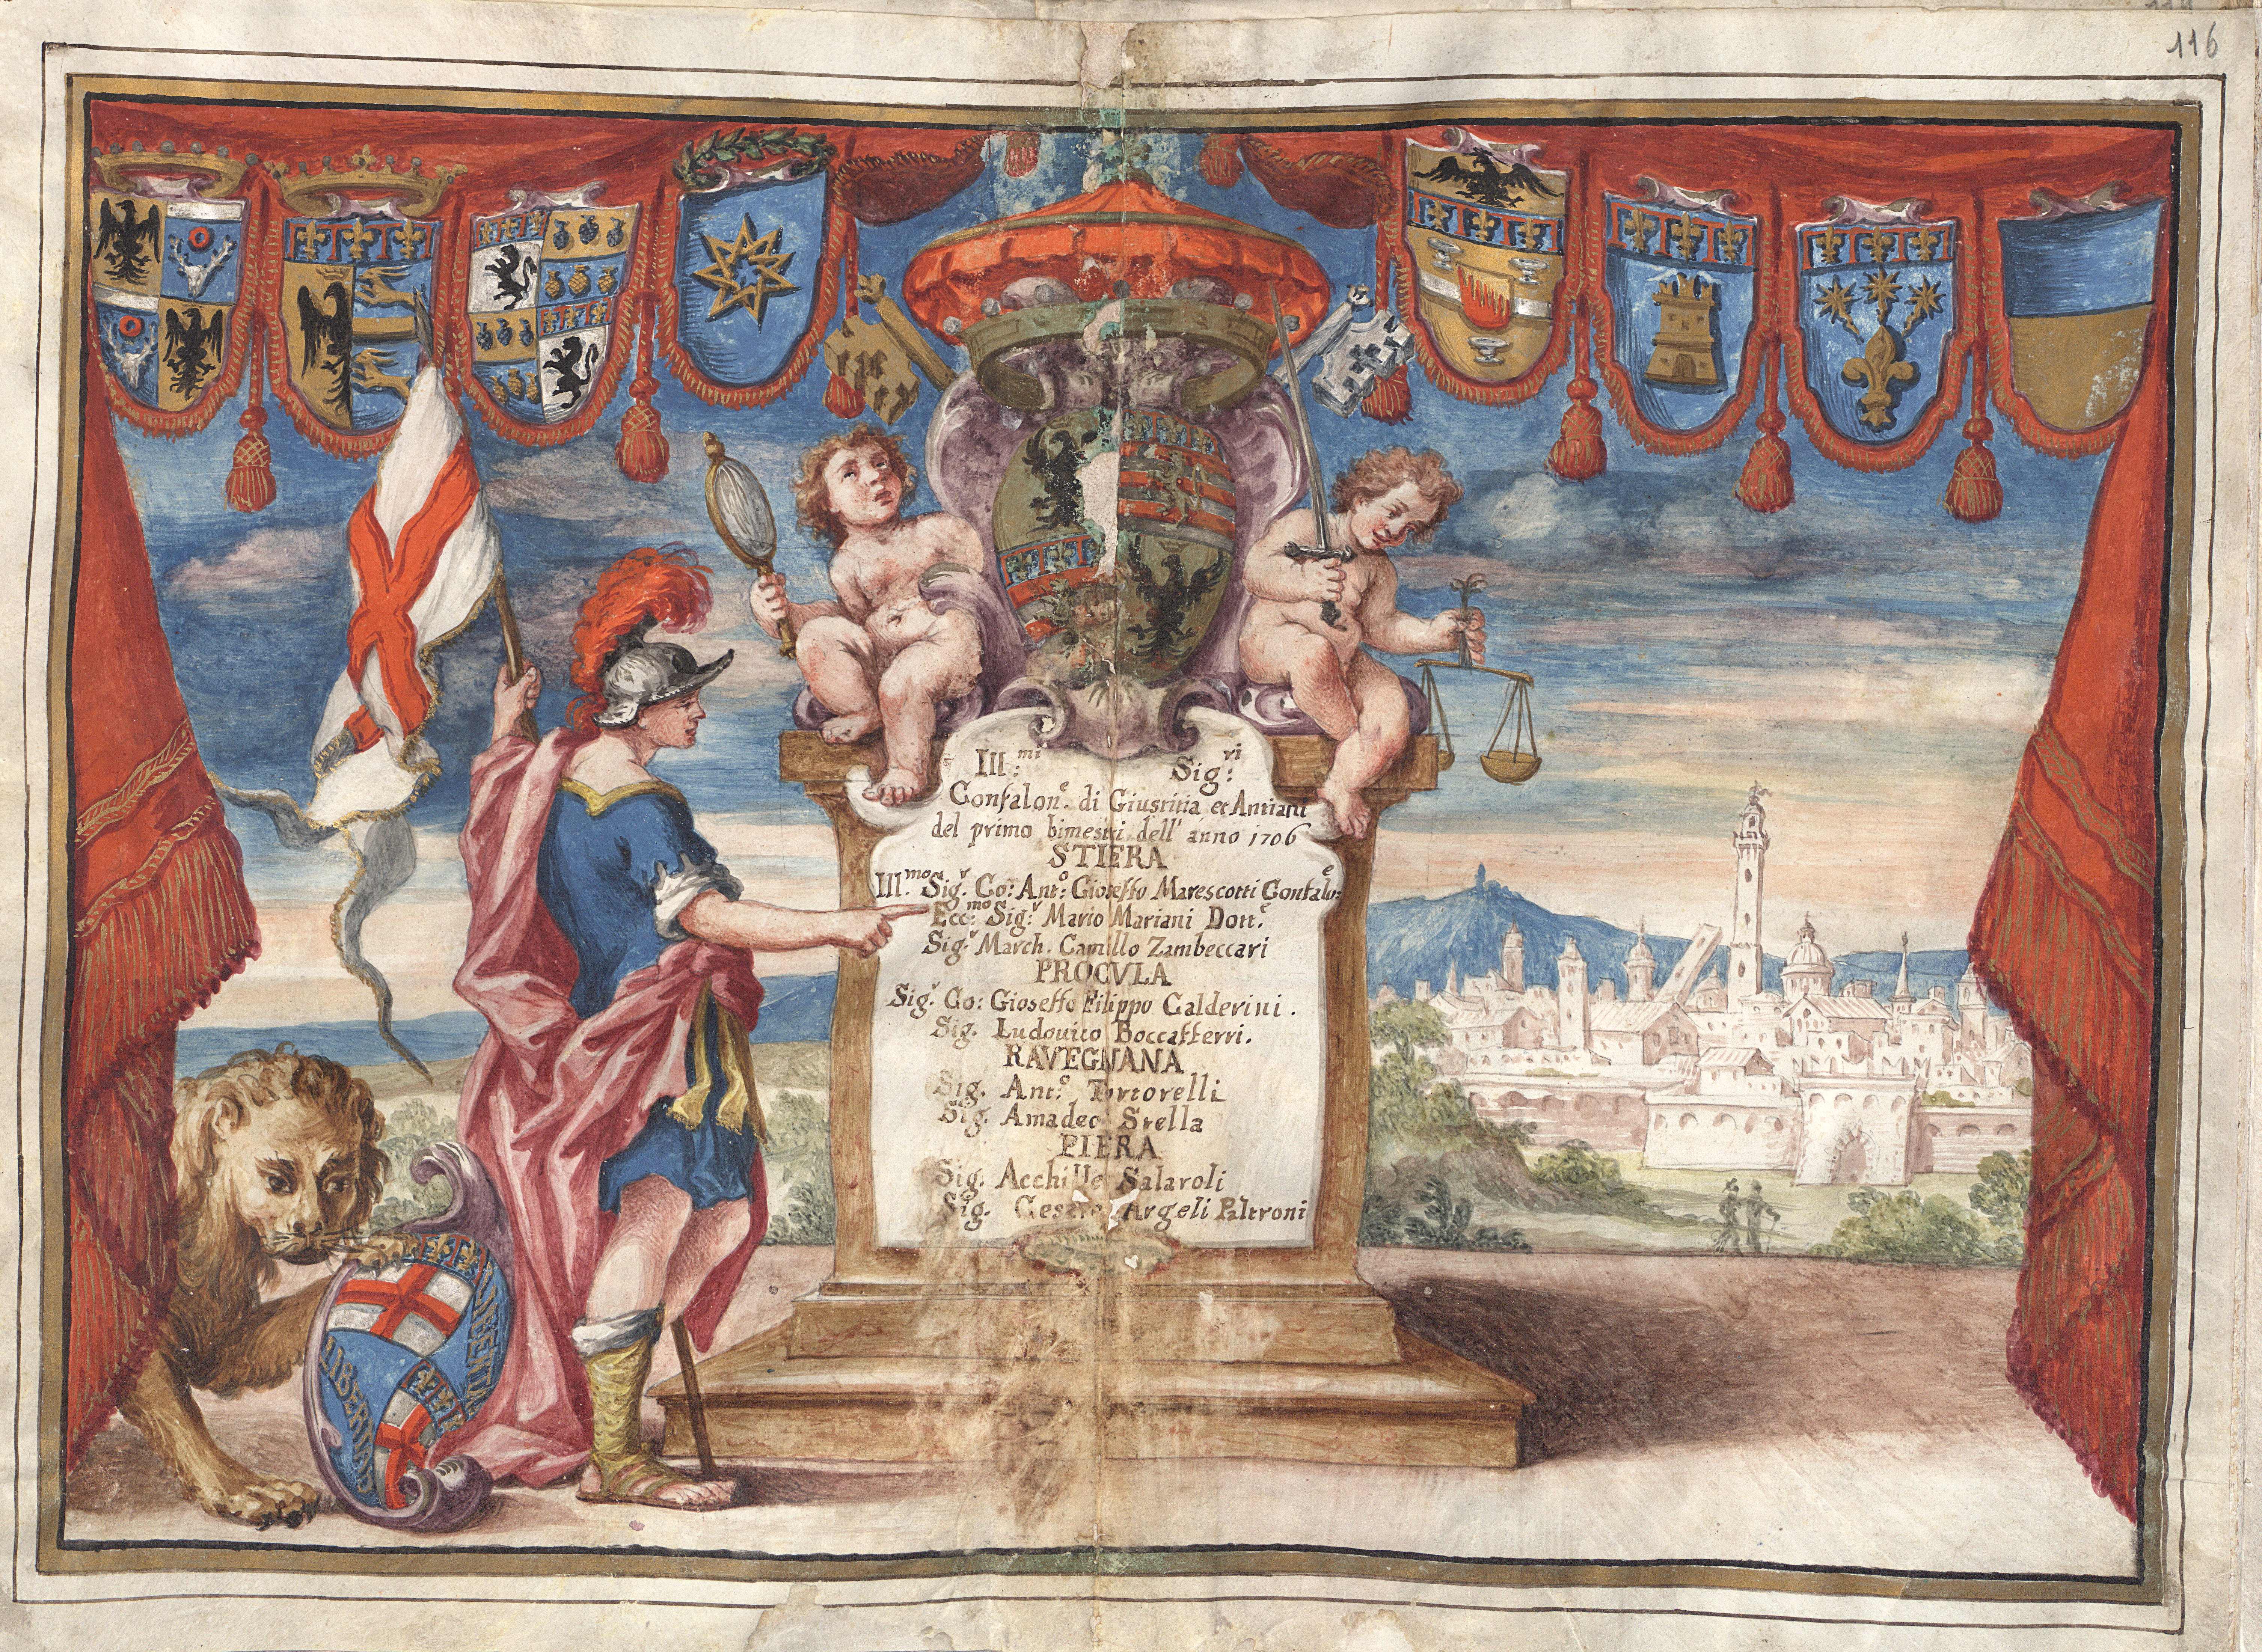 116
Ill:mi Sig:ri
Confalone. di Giustitia et Antiani
del primo bimestri dell' anno 1706
STIERA
Ill.mo Sigr. Co: Anto: Gioseffo Marescotti Confaloe:
Ecc:mo Sigr Mario Mariani Dotte.
Sigr March. Camillo Zambeccari
PROCVLA
Sigr. Co: Gioseffo Filippo Calderini.
Sig. Ludouico Boccafferri.
RAVEGNANA
Sig. Anto: Tortorelli
Sig. Amadeo Stella
PIERA
Sig. Acchille Salaroli
Sig. Cesare Argeli Paltroni
LIBERTAS
LIBERTAS